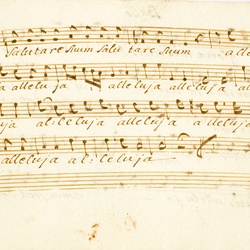 Salutare suum Salutare suum alle
ja alleluja alleluja alleluja al
ja alleluja alleluja alleluja
alleluja alleluja